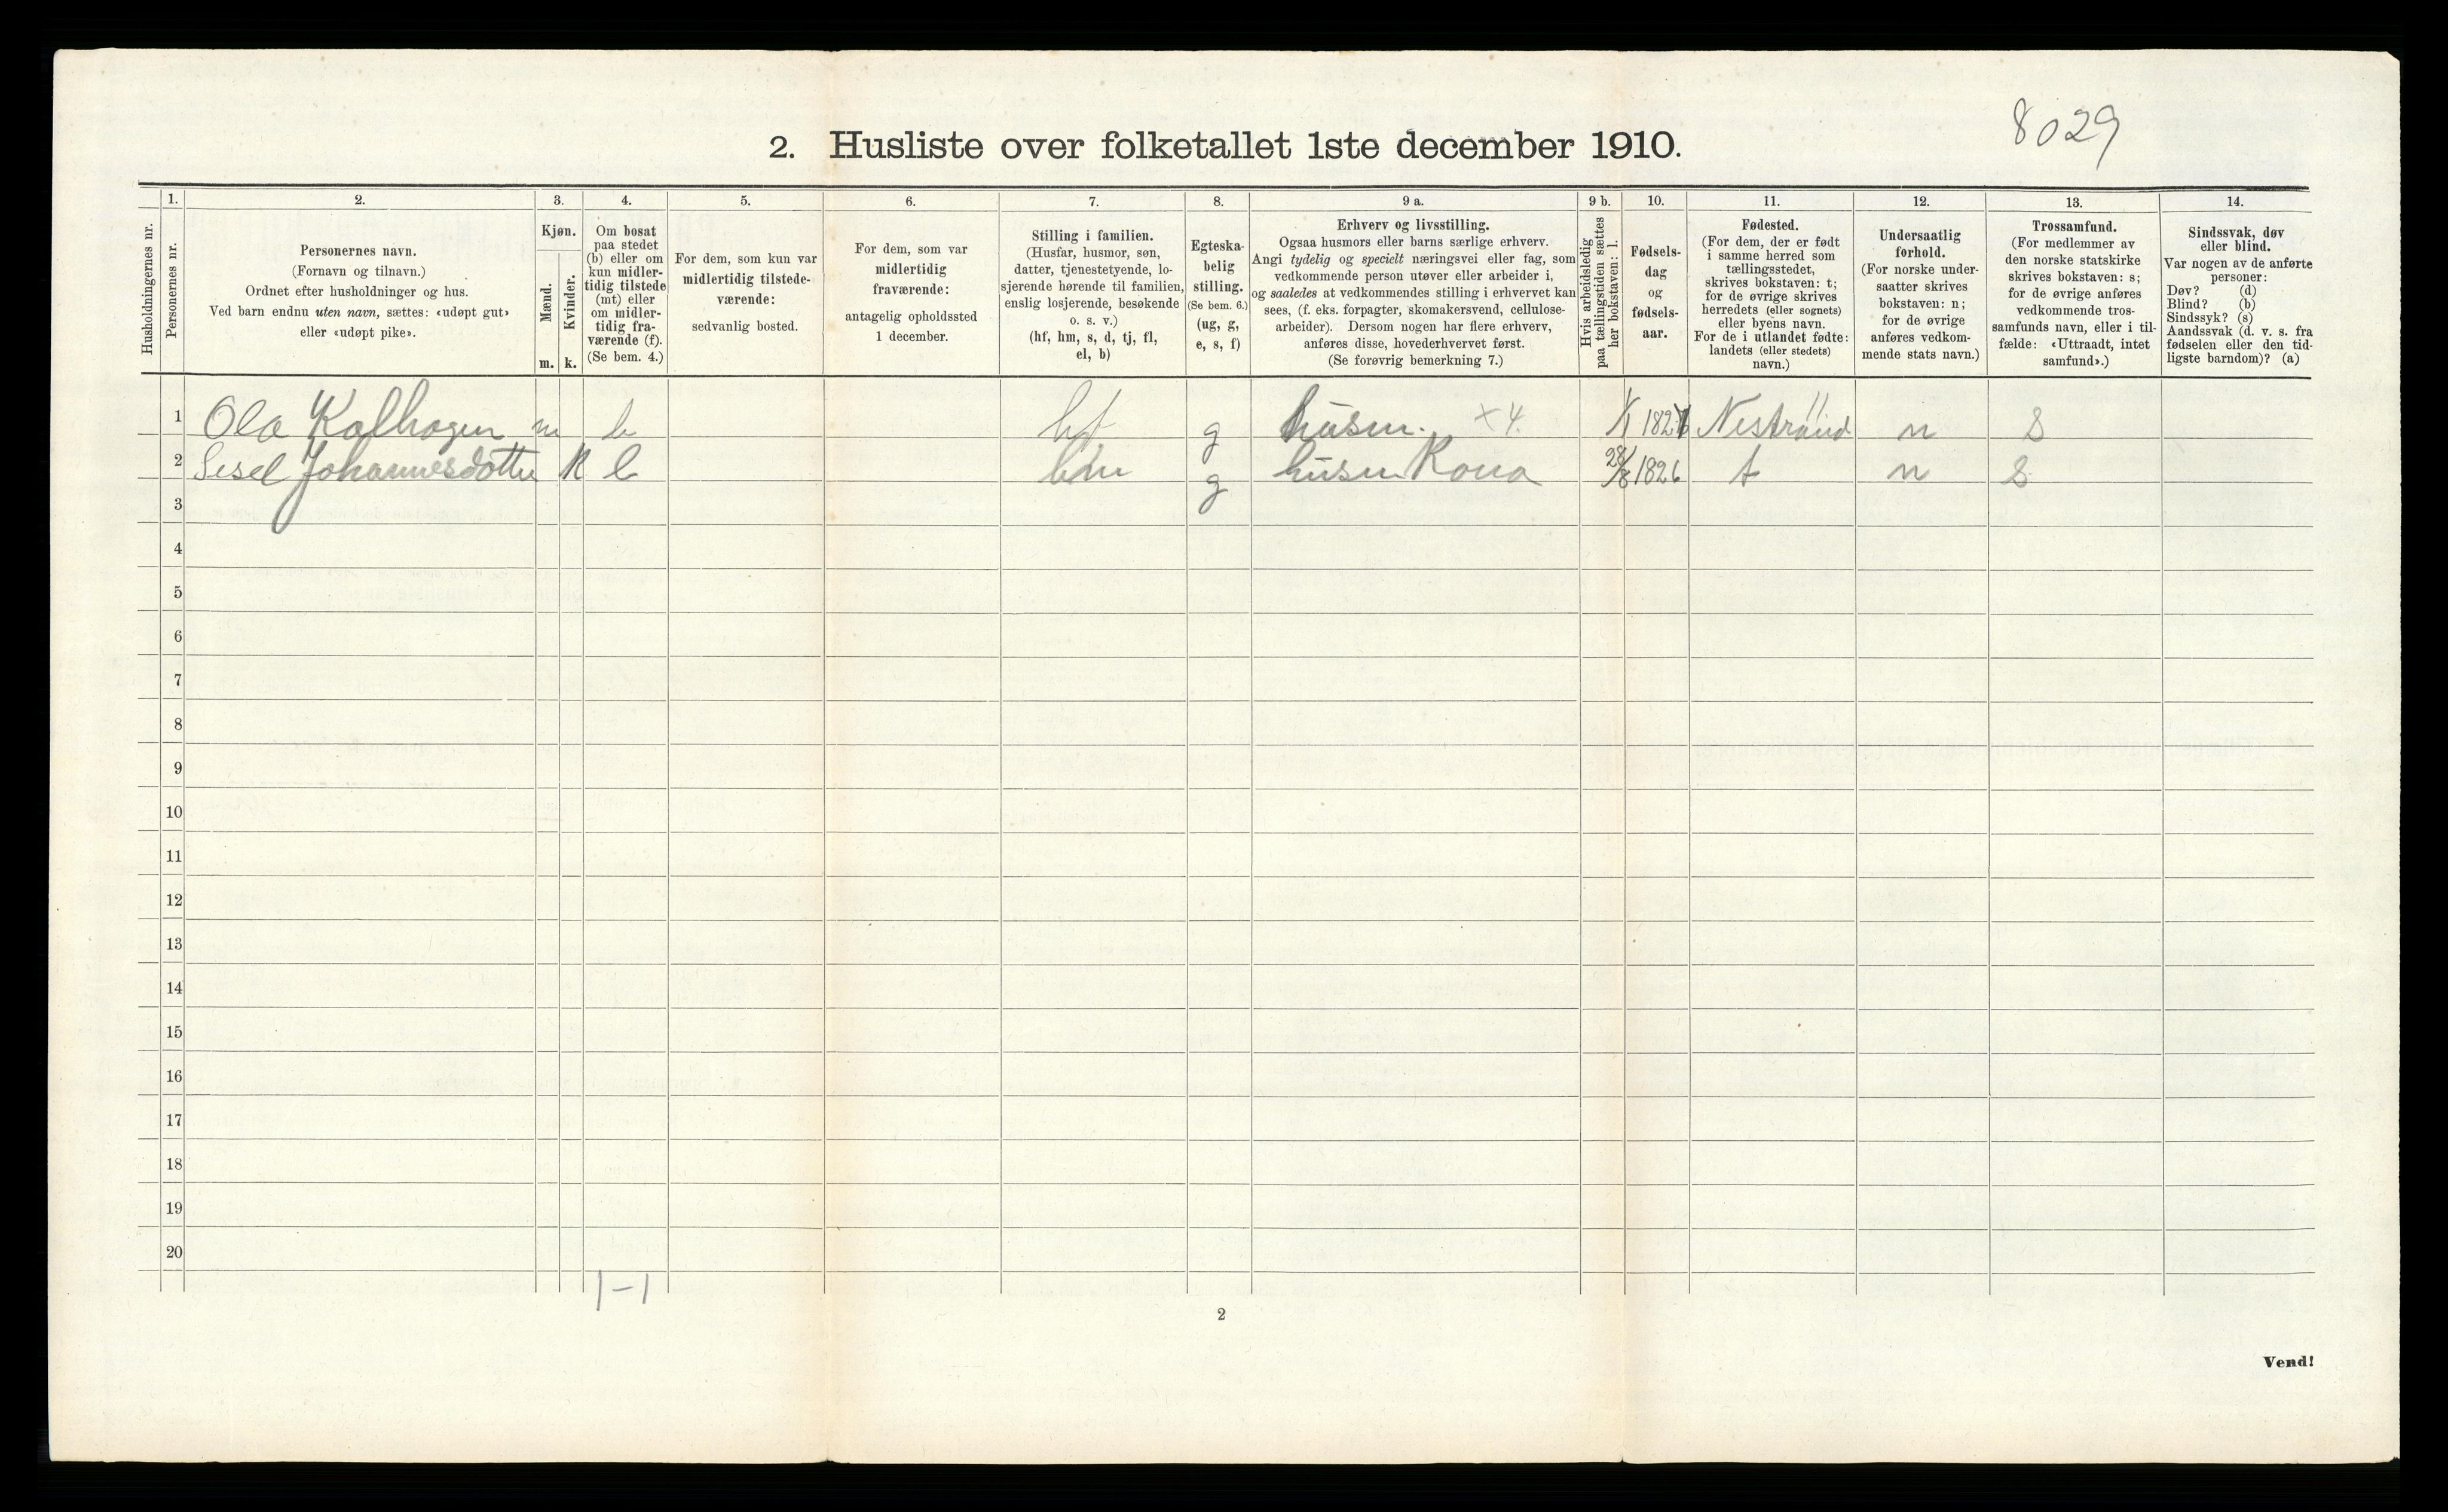 8029
2. Husliste over folketallet 1ste december 1910.
Husholdningernes nr.
1.
Personernes nr.
2.
Personernes navn.
(Fornavn og tilnavn.)
Ordnet efter husholdninger og hus.
Ved barn endnu uten navn, sættes: «udøpt gut»
eller «udøpt pike».
3.
Kjøn.
Mænd.
m.
Kvinder.
k.
4.
Om bosat
paa stedet
(b) eller om
kun midler-
tidig tilstede
(mt) eller
om midler-
tidig fra-
værende (f).
(Se bem. 4.)
5.
For dem, som kun var
midlertidig tilstede-
værende:
sedvanlig bosted.
6.
For dem, som var
midlertidig
fraværende:
antagelig opholdssted
1 december.
7.
Stilling i familien.
(Husfar, husmor, søn,
datter, tjenestetyende, lo-
sjerende hørende til familien,
enslig losjerende, besøkende
o. s. v.)
(hf, hm, s, d, tj, fl,
el, b)
8.
Egteska-
belig
stilling.
(Se bem. 6.)
(ug, g,
e, s, f)
9 a.
Erhverv og livsstilling.
Ogsaa husmors eller barns særlige erhverv.
Angi tydelig og specielt næringsvei eller fag, som
vedkommende person utøver eller arbeider i,
og saaledes at vedkommendes stilling i erhvervet kan
sees, (f. eks. forpagter, skomakersvend, cellulose-
arbeider). Dersom nogen har flere erhverv,
anføres disse, hovederhvervet først.
(Se forøvrig bemerkning 7.)
9 b.
Hvis arbeidsledig
paa tællingstiden sættes
her bokstaven: l.
10.
Fødsels-
dag
og
fødsels-
aar.
11.
Fødested.
(For dem, der er født
i samme herred som
tællingsstedet,
skrives bokstaven: t;
for de øvrige skrives
herredets (eller sognets)
eller byens navn.
For de i utlandet fødte:
landets (eller stedets)
navn.)
12.
Undersaatlig
forhold.
(For norske under-
saatter skrives
bokstaven: n;
for de øvrige
anføres vedkom-
mende stats navn.)
13.
Trossamfund.
(For medlemmer av
den norske statskirke
skrives bokstaven: s;
for de øvrige anføres
vedkommende tros-
samfunds navn, eller i til-
fælde: «Uttraadt, intet
samfund».)
14.
Sindssvak, døv
eller blind.
Var nogen av de anførte
personer:
Døv? (d)
Blind? (b)
Sindssyk? (s)
Aandssvak (d. v. s. fra
fødselen eller den tid-
ligste barndom)? (a)
1 Ola Kalhagen m b hf g husm. x 4. 1/1 Nestrand n S
2 Sesel Johannesdotter k b hm g husm Kona 28/8 1826 t n S
3
4
5
6
7
8
9
10
11
12
13
14
15
16
17
18
19
20
1-1
2
Vend!